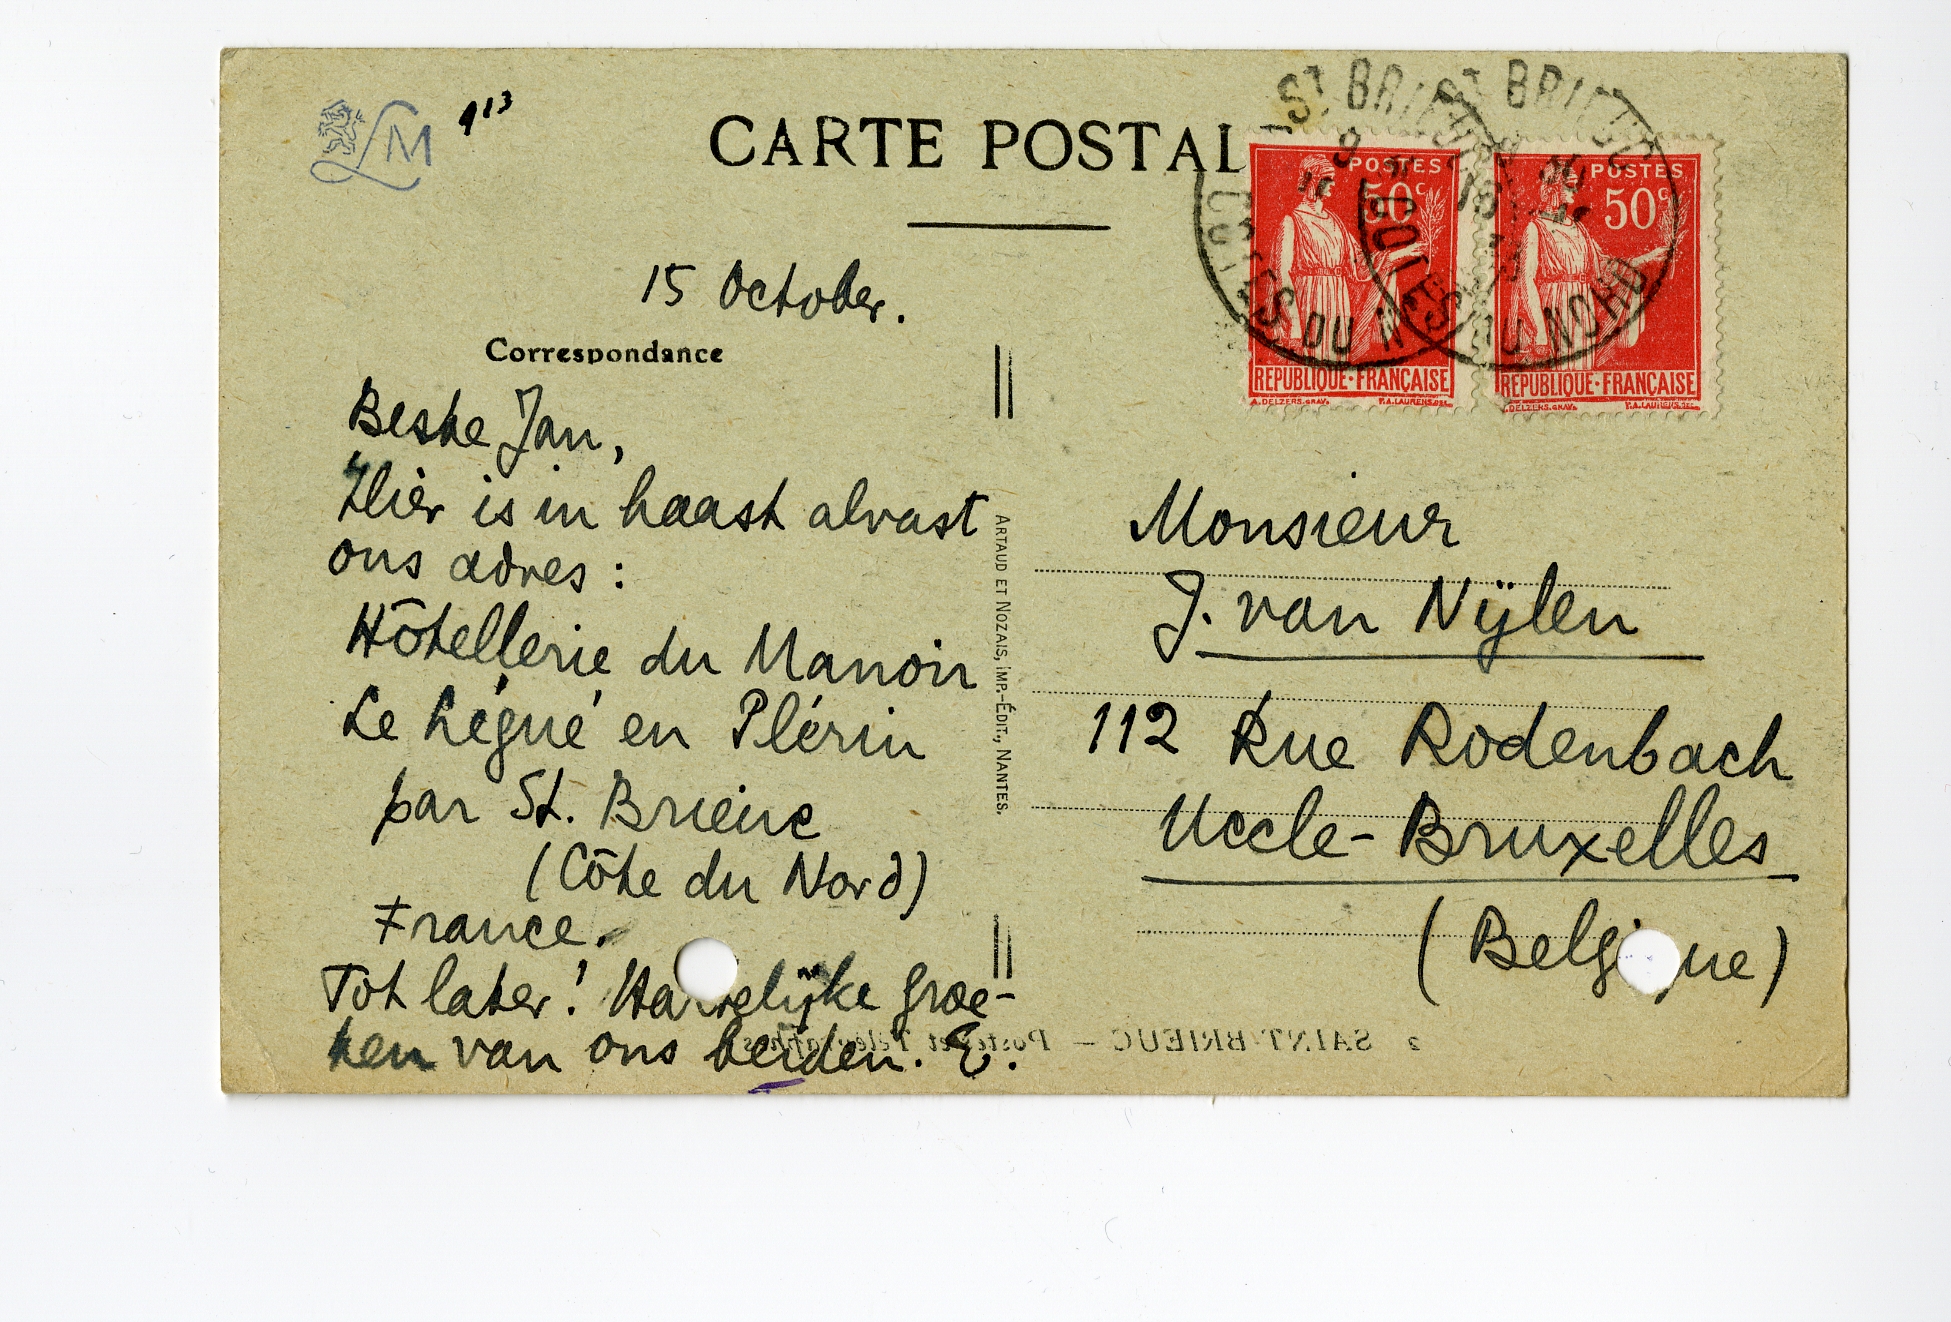 LM 113
CARTE POSTALE
ST BRIEUC
COTES DU NORD
ST BRIEUC
COTES DU NORD
POSTES
50c
REPUBLIQUE·FRANÇAISE
A.DELZERS.GRAV. P.A.LAURENS.DEL.
POSTES
50c
REPUBLIQUE·FRANÇAISE
A.DELZERS.GRAV. P.A.LAURENS.DEL.
15 October.
Correspondance
Beste Jan,
Hier is in haast alvast
ons adres :
Hôtellerie du Manoir
Le Légué en Plérin
par St. Brieuc
(Côte du Nord)
France.
Tot later! Hartelijke groe-
ten van ons beiden. E.
ARTAUD ET NOZAIS, IMP.-ÉDIT., NANTES.
Monsieur
J. van Nijlen
112 Rue Rodenbach
Uccle-Bruxelles
(Belgique)
2 SAINT-BRIEUC — Postes et Télégraphes